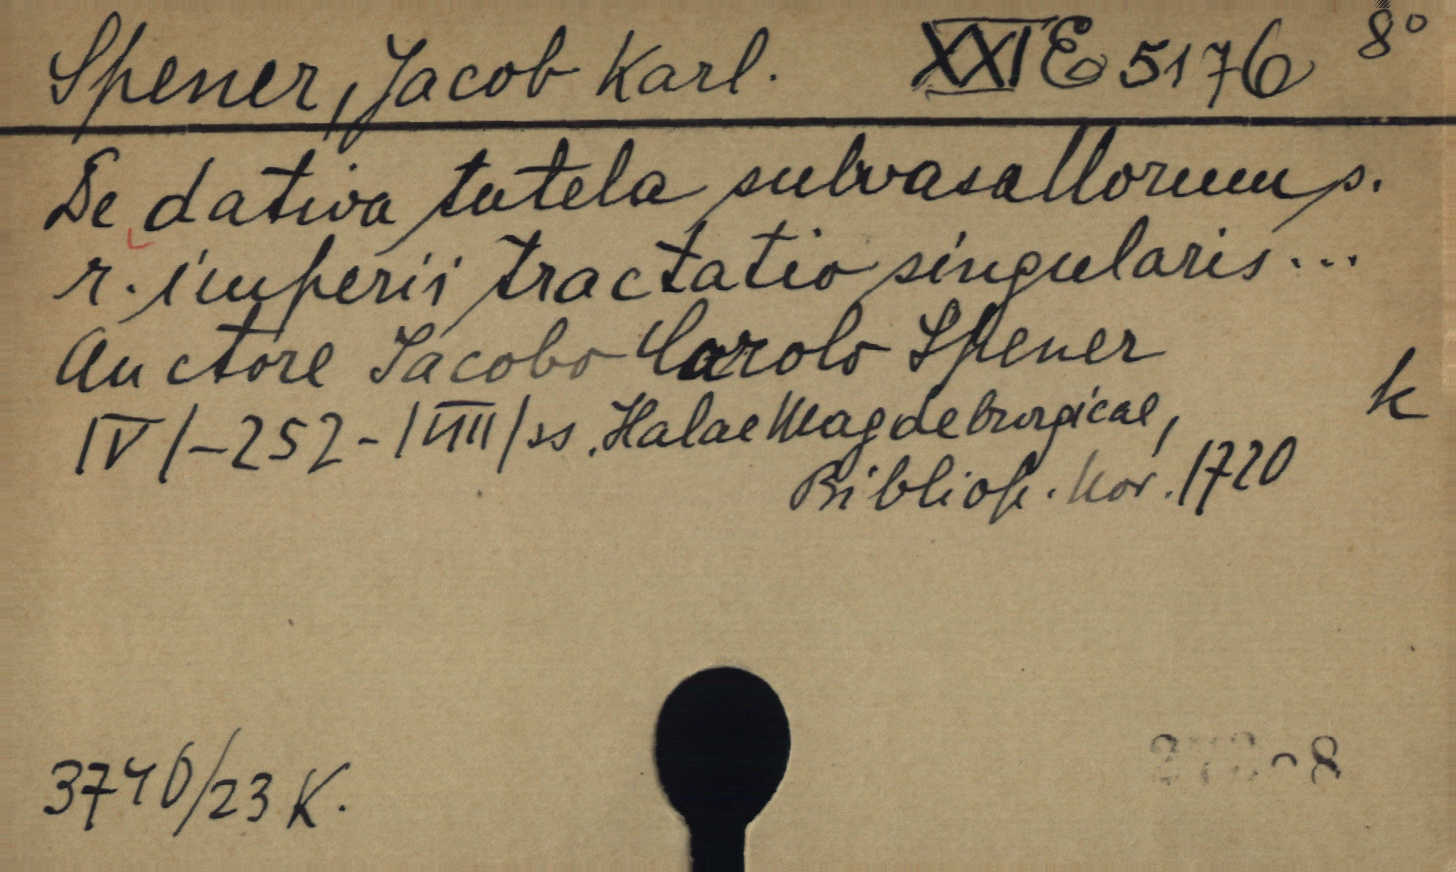 Spener, Jacob Karl. XXI E 5176 8°
De dativa tutela subvasallorum s.
r. imperii tractatio singularis...
Auctore Jacobo Carolo Spener
k
|IV|-252-|VIII|ss. Halae Magdeburgicae,
Bibliop. Nov. 1720
3740/23 K.